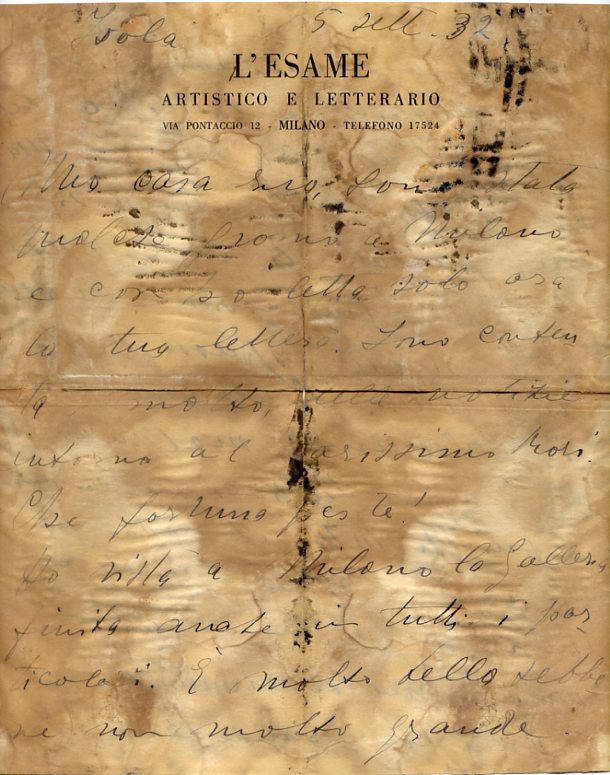 Isola 5 sett. 32
L'ESAME
ARTISTICO E LETTERARIO
VIA PONTACCIO 12 - MILANO - TELEFONO 17524
Mio caro son stata
qualche giorno a Milano
e così ho letta solo ora
la tua lettera. Sono conten
ta molto, delle notizie
intorno al carissimo
Che fortuna per te!
Ho vista a Milano la Galleria
finita anche in tutti i par
ticolari. È molto bella sebbe
ne non molto grande.